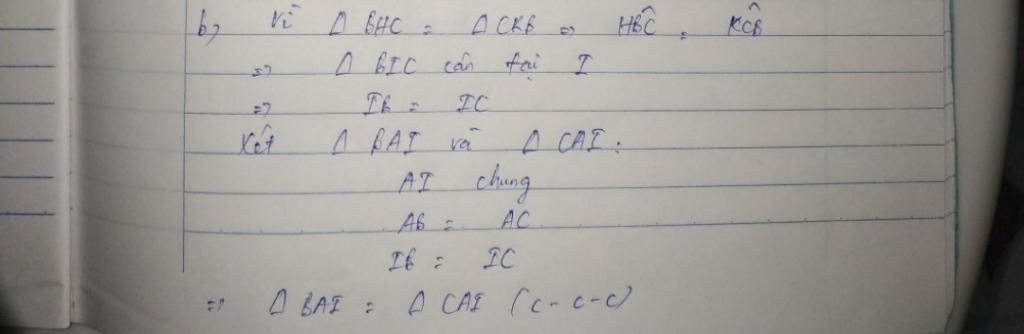 b, Vì Δ BHC = Δ CKB => HBC^ = KCB^
=> Δ BIC cân tại I
=> IB = IC
Xét Δ BAI và Δ CAI:
AI chung
AB = AC
IB = IC
=> Δ BAI = Δ CAI (c-c-c)